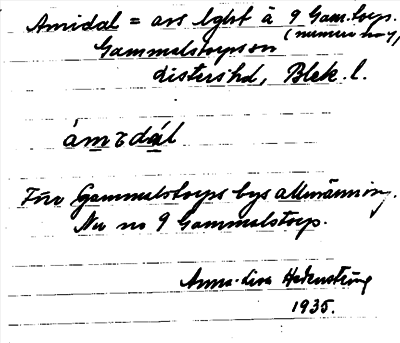 Amidal = avs lght å 9 Gam.torp.
(numera no 7)
Gammalstorps sn
Listers hd, Blek. l.
ámɩdál
Förr Gammalstorps bys allmänning.
Nu no 9 Gammalstorp.
Anna-Lisa Hedenström
1935.